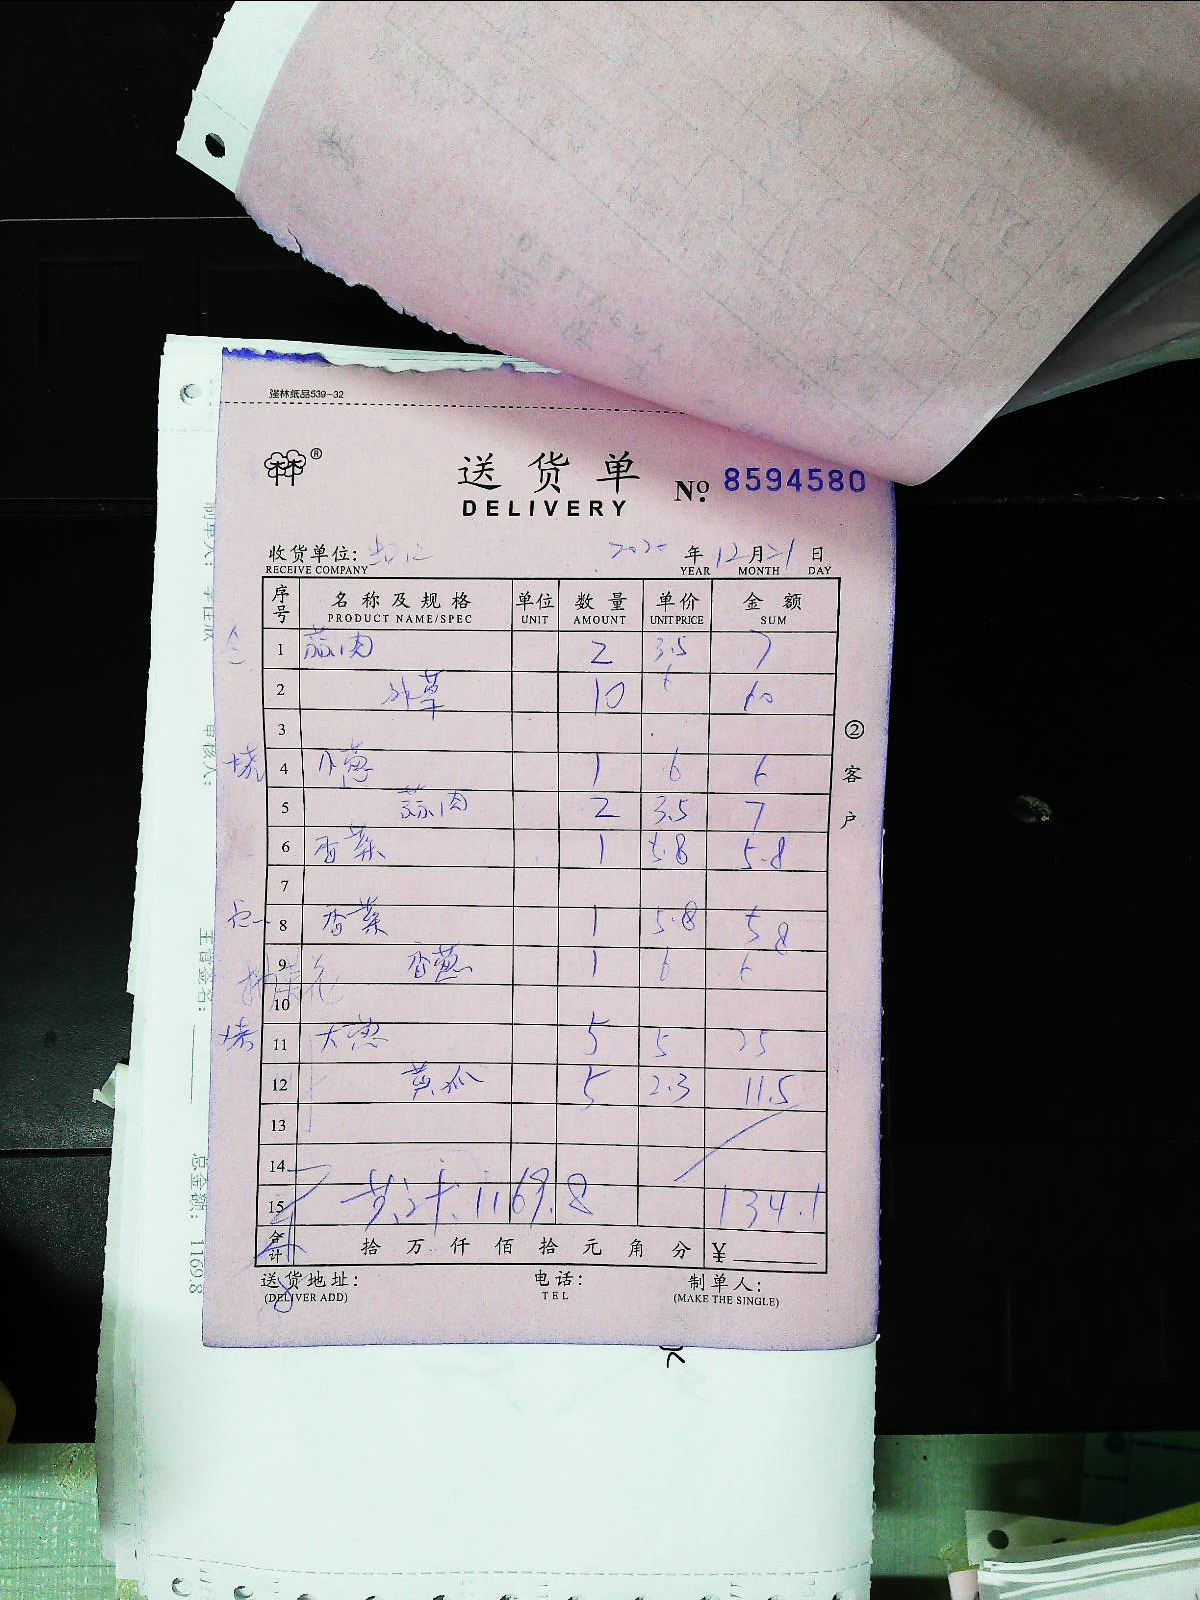 强林纸品539-32
林林®
送货单
DELIVERY
Nº. 8594580
收货单位:
RECEIVE COMPANY
2020 年 12 月 21 日
YEAR MONTH DAY
序号 名称及规格 单位 数量 单价 金额
PRODUCT NAME/SPEC UNIT AMOUNT UNIT PRICE SUM
1 蒜肉 2 3.5 7
2 10 6 60
3
烧 4 小葱 1 6 6
5 蒜肉 2 3.5 7
6 香菜 1 5.8 5.8
7
点 8 香菜 1 5.8 5.8
9 香葱 1 6 6
10
烤 11 大葱 5 5 25
12 黄瓜 5 2.3 11.5
13
14
15 共计.1169.8 134.1
合计 拾 万 仟 佰 拾 元 角 分 ¥
送货地址: 电话: 制单人:
(DELIVER ADD) TEL (MAKE THE SINGLE)
②客户
审核人:
主管签名:
总金额: 1169.8